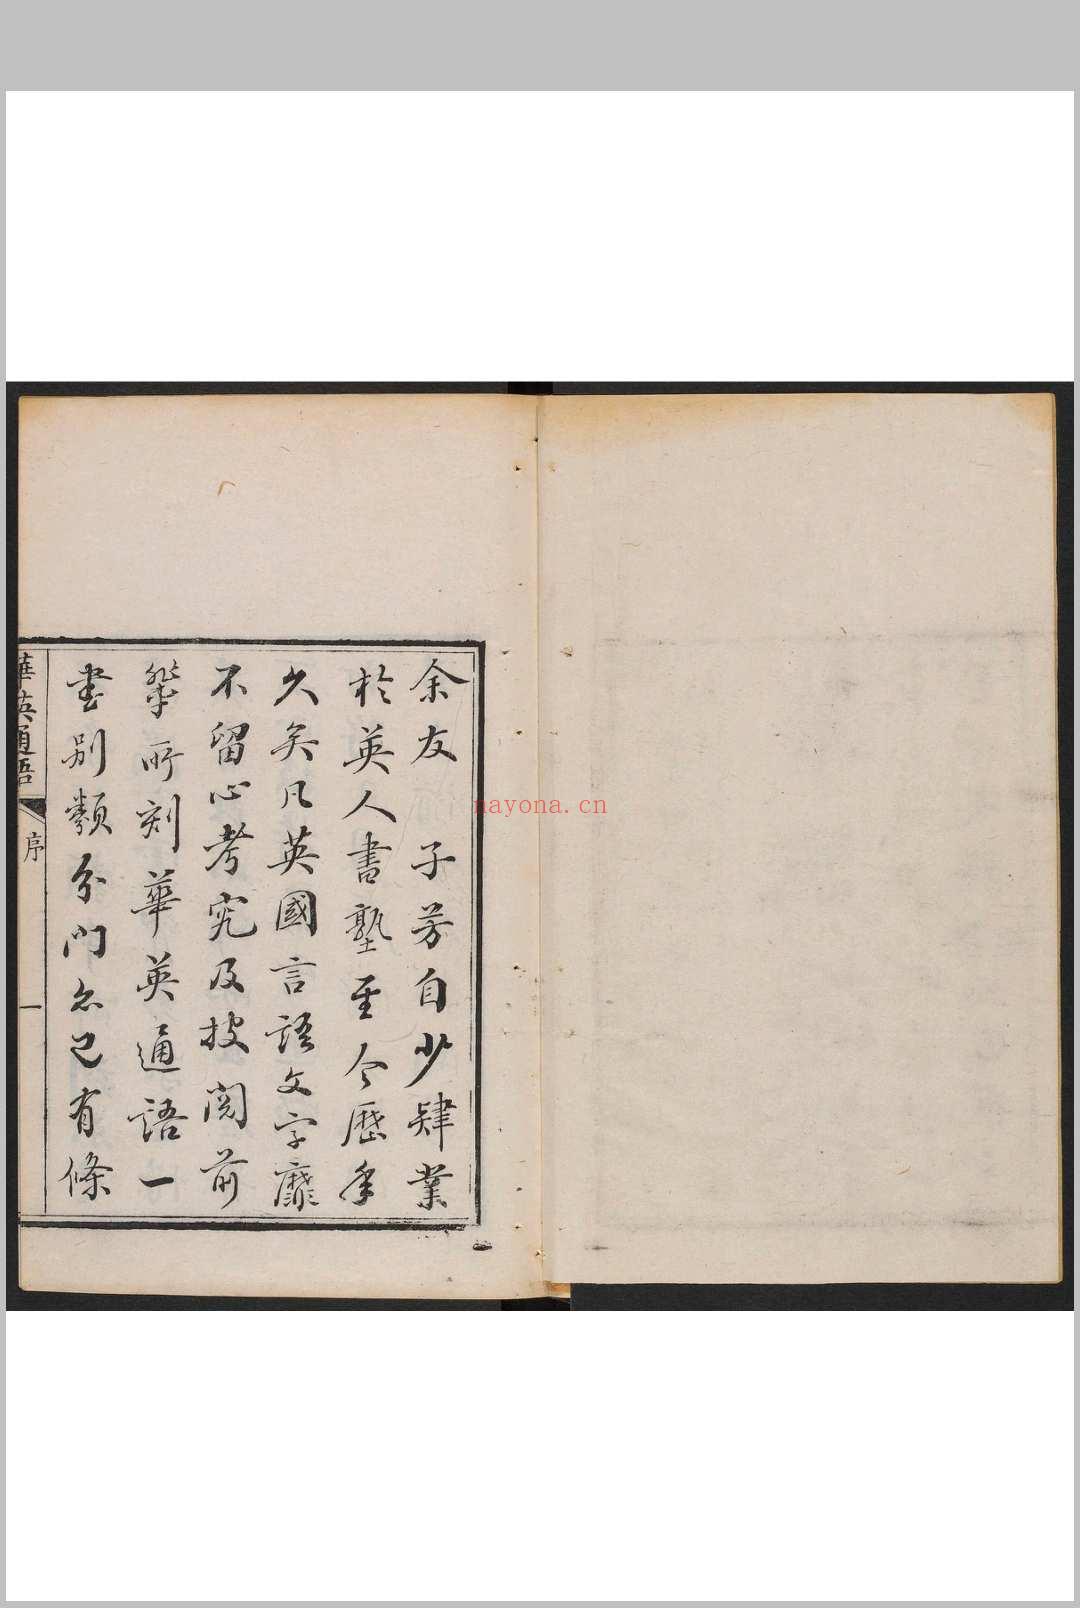 余友 子芳自少肄業
於英人書塾至今歷年
久矣凡英國言語文字靡
不留心考究及披閱前
輩所刻華英通語一
書別類分門亦已有條
華英通語 序 一
nayona.cn